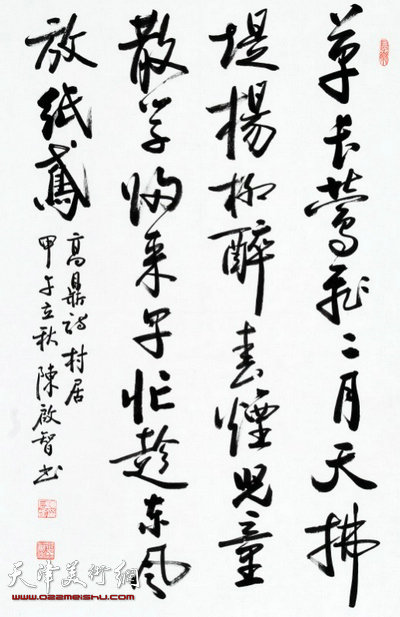 草长莺飞二月天拂
堤杨柳醉春煙児童
散学归来早忙趁东风
放紙鳶
高鼎诗村居
甲午立秋陳啟智书
天津美術網
www.022meishu.com